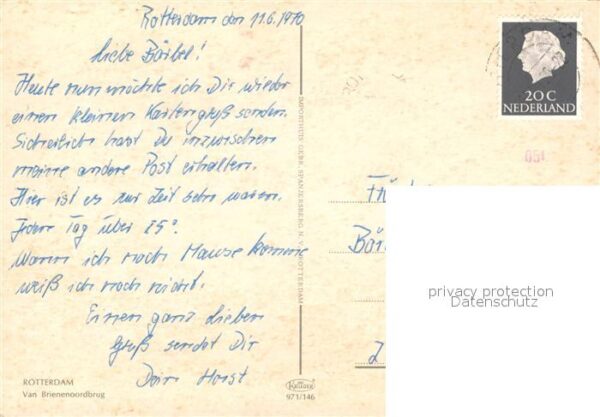 Rotterdam den 11.6.1970
Liebe Bärbel!
Heute nun möchte ich Dir wieder
einen kleinen Kartengruß senden.
Sicherlich hast Du inzwischen
meine andere Post erhalten.
Hier ist es zur Zeit sehr warm.
Jeden Tag über 25°.
Wann ich nach Hause komme
weiß ich noch nicht.
Einen ganz lieben
Gruß sendet Dir
Dein Horst
ROTTERDAM
Van Brienenoordbrug
IMPORTHUIS GEBR. SPANJERSBERG N.V. ROTTERDAM
971/146
20 C
NEDERLAND
051
privacy protection
Datenschutz